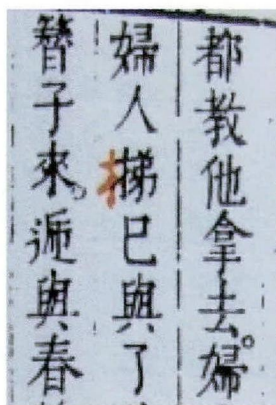 都教他拿去。婦
婦人梯已與了
簪子來。遞與春